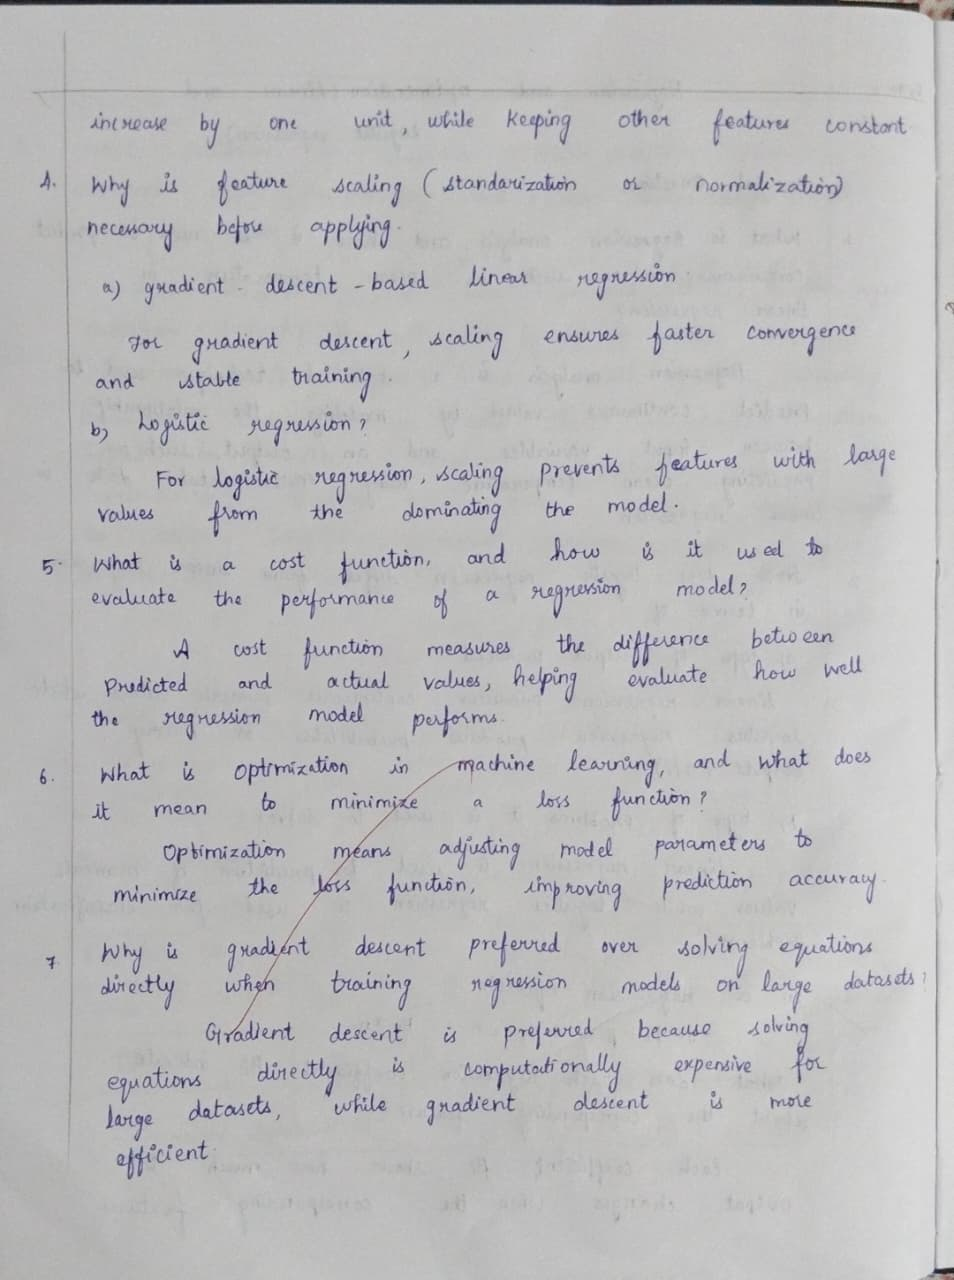 increase by one unit, while keeping other features constant
4. Why is feature scaling (standarization or normalization)
necessary before applying.
a) gradient - descent - based linear regression
For gradient descent, scaling ensures faster convergence
and stable training.
b) Logistic regression?
For logistic regression, scaling prevents features with large
values from the dominating the model.
5. What is a cost function, and how is it used to
evaluate the performance of a regression model?
A cost function measures the difference between
predicted and actual values, helping evaluate how well
the regression model performs.
6. What is optimization in machine learning, and what does
it mean to minimize a loss function?
Optimization means adjusting model parameters to
minimize the loss function, improving prediction accuracy.
7. Why is gradient descent preferred over solving equations
directly when training regression models on large datasets?
Gradient descent is preferred because solving
equations directly is computationally expensive for
large datasets, while gradient descent is more
efficient.